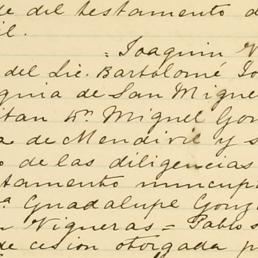 de del testamento d
il.
= Joaquin V
del Lic. Bartolomé Jo
quia de San Migue
itan Dn. Miguel Gon
a de Mendivil y s
o de las diligencias
tamento nuncup
ª Guadalupe Gonz
n Nigueras = Pablo s
de cesion otorgada p